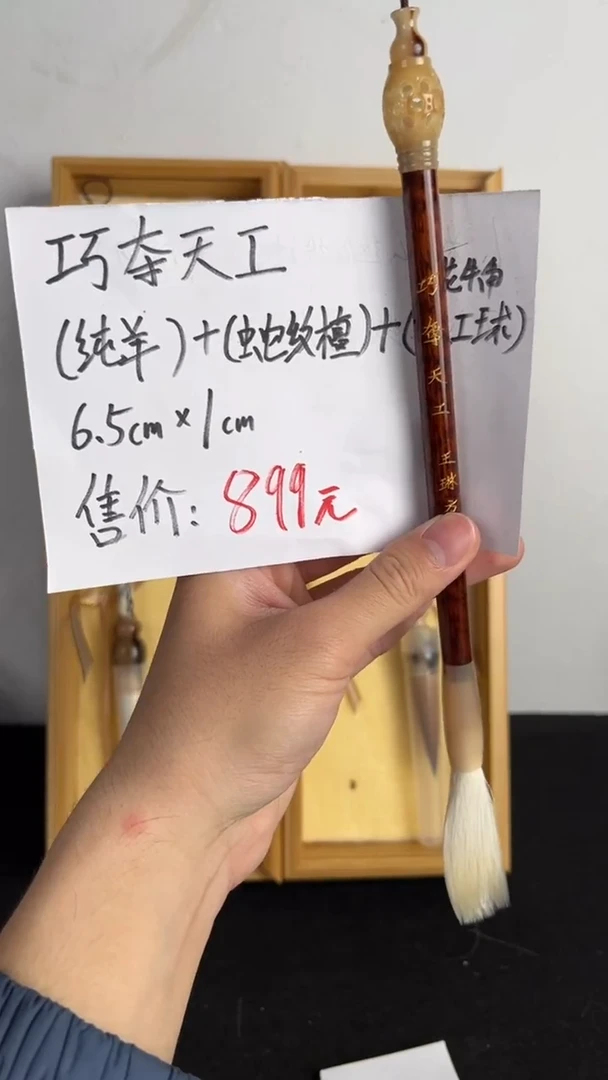 巧夺天工
花牛角
(纯羊)+(蛇纹檀)+( 工球)
6.5cm×1cm
售价: 899元
巧夺天工 王琳